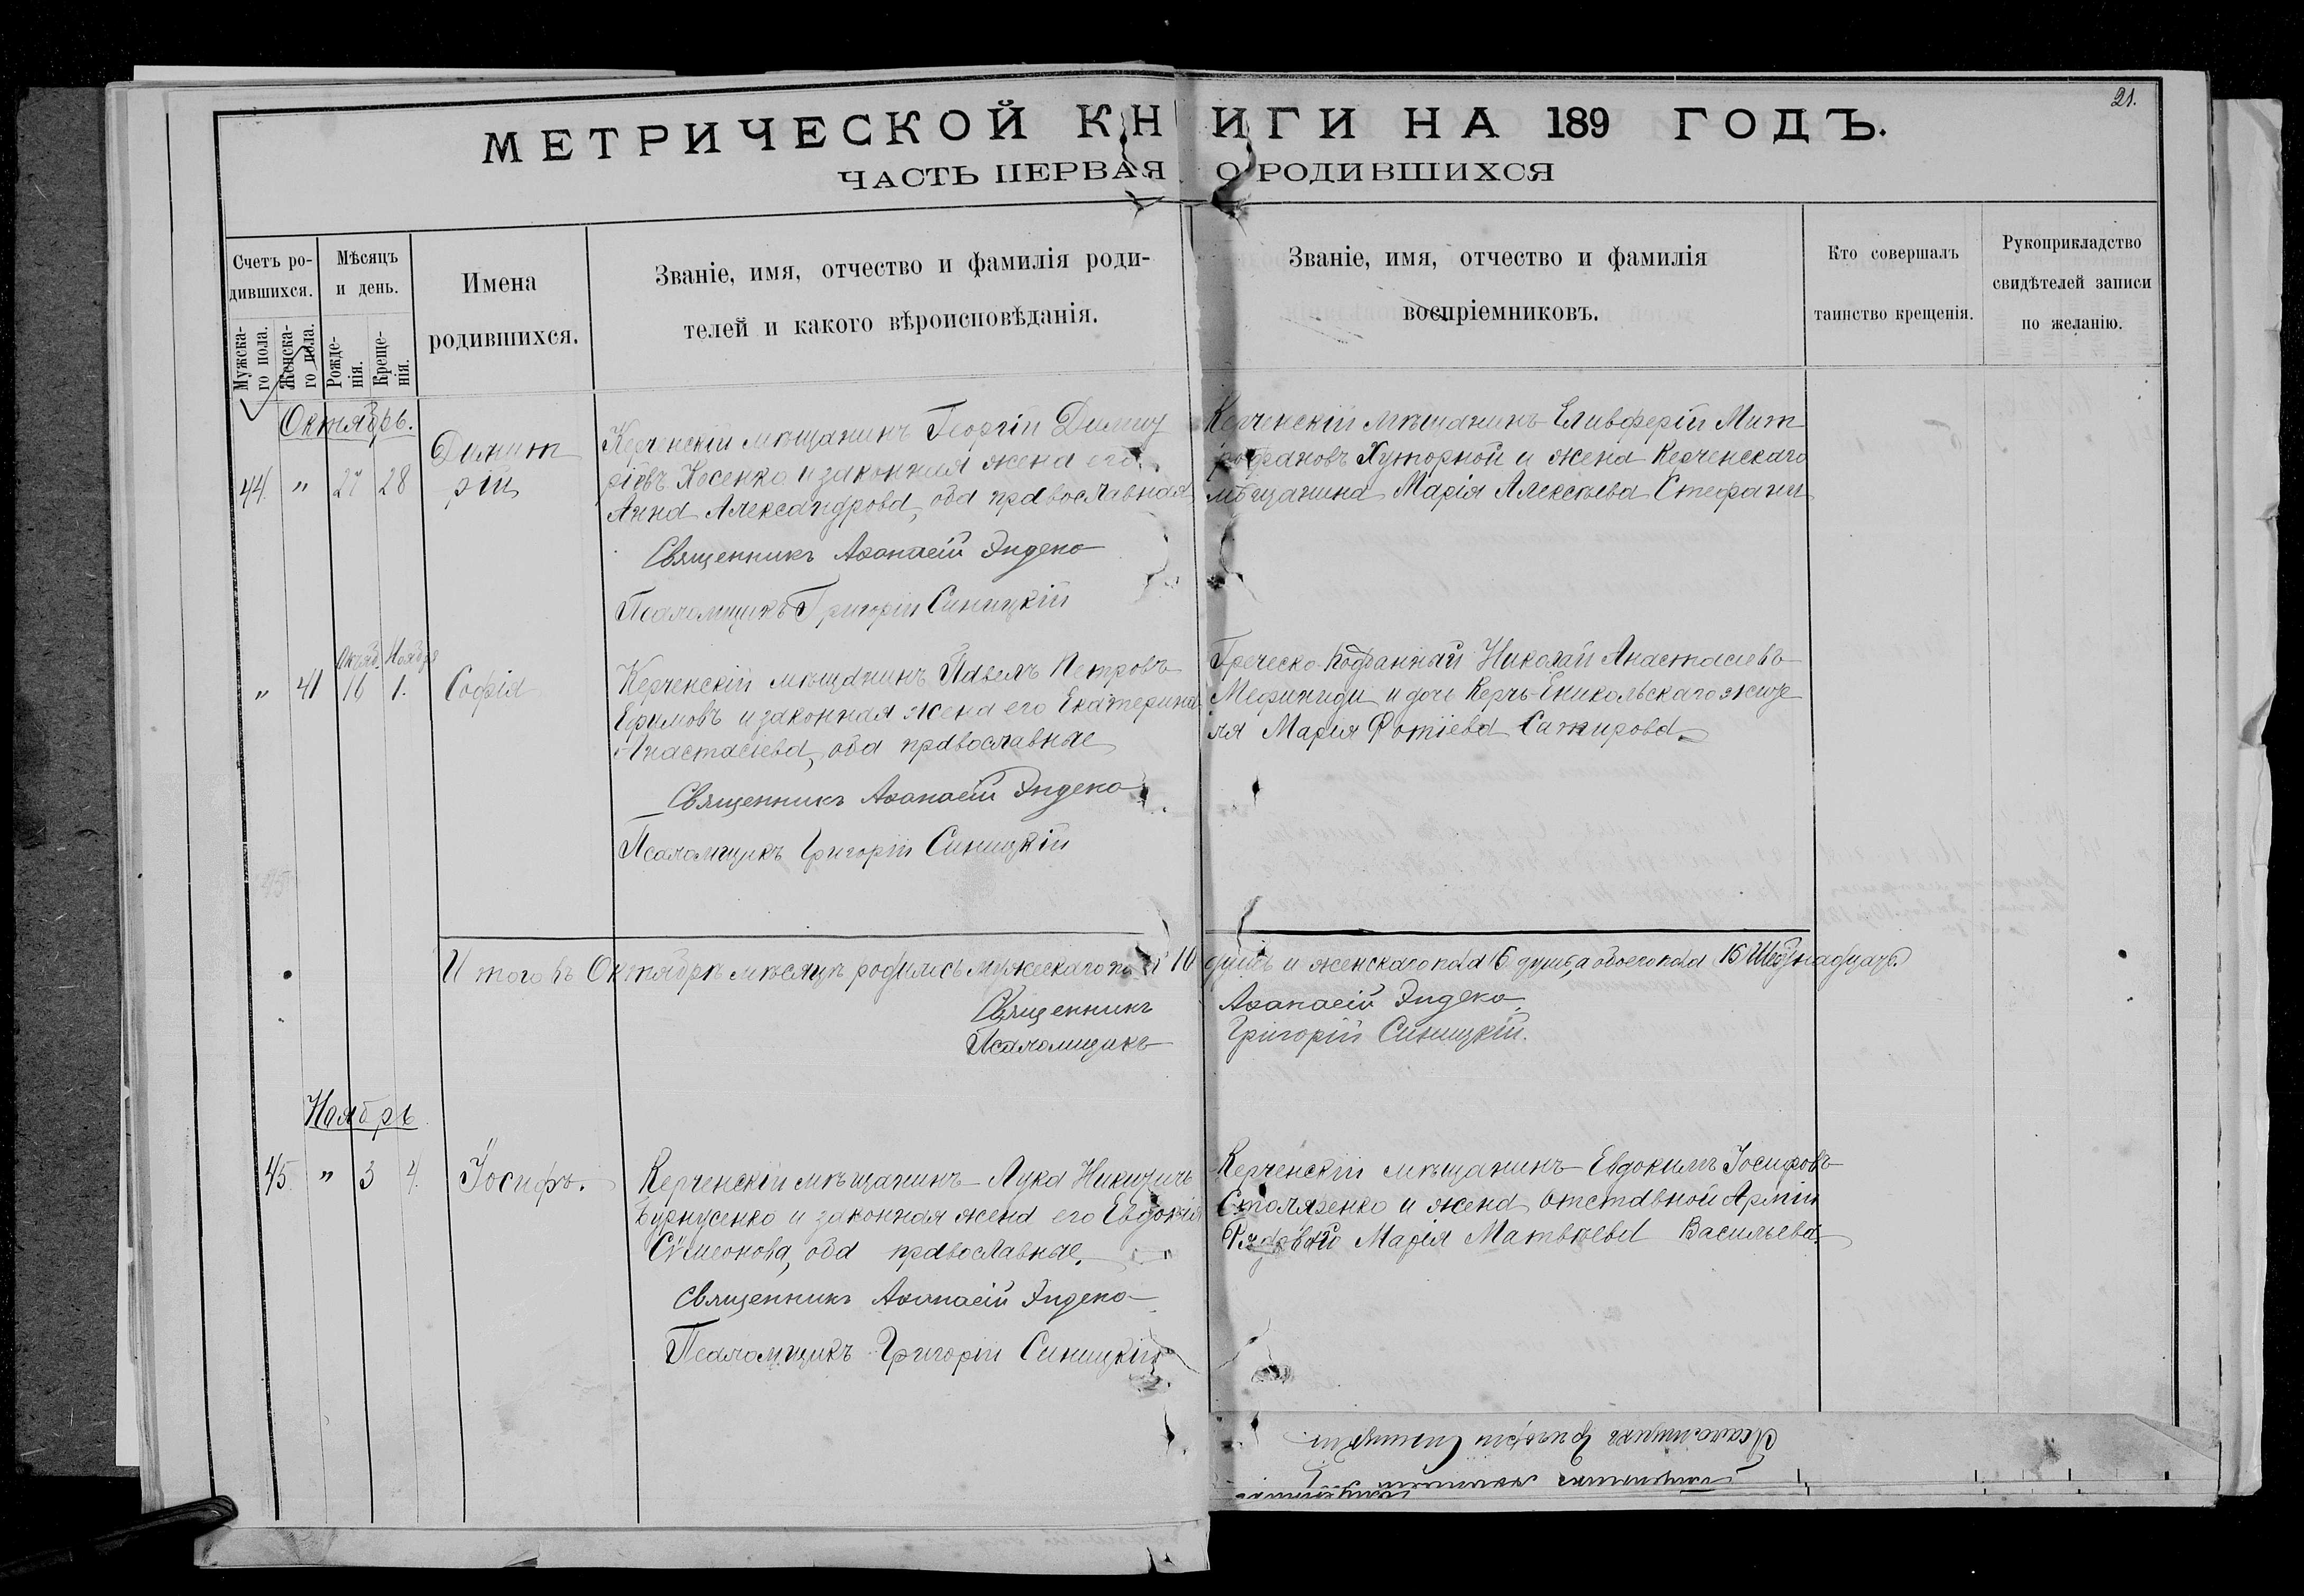 21.
МЕТРИЧЕСКОЙ КНИГИ НА 189 ГОДЪ.
ЧАСТЬ ПЕРВАЯ О РОДИВШИХСЯ
Счетъ ро-
дившихся.
Мужска-
го пола.
Женска-
го пола.
Мѣсяцъ
и день.
Рожде-
нія.
Креще-
нія.
Имена
родившихся.
Званіе, имя, отчество и фамилія роди-
телей и какого вѣроисповѣданія.
Званіе, имя, отчество и фамилія
воспріемниковъ.
Кто совершалъ
таинство крещенія.
Рукоприкладство
свидѣтелей записи
по желанію.
Октябрь.
44. " 27 28
Димит
рій
Керченскій мѣщанинъ Георгій Димит
ріевъ Косенко и законная жена его
Анна Александрова, оба православная
Священникъ Аѳанасій Эндеко
Псаломщикъ Григорій Синицкій
Керченскій мѣщанинъ Еливферій Мит
рофановъ Хуторной и жена Керченскаго
мѣщанина Марія Алексѣева Стефани
Октяб. Ноября
" 41 16 1.
Софія
Керченскій мѣщанинъ Павелъ Петровъ
Ефимовъ и законная жена его Екатерина
Анастасіева, оба православные
Священникъ Аѳанасій Эндеко
Псаломщикъ Григорій Синицкій
Греческо-подданный Николай Анастасіевъ
и дочь Керчь-Еникольскаго жите
ля Марія Фотіева Сатирова
Итого въ Октябрѣ мѣсяцѣ родилось мужескаго пола 10 душъ и женскаго пола 6 душъ, а обоего пола 16 Шестнадцать.
Священникъ Аѳанасій Эндеко
Псаломщикъ Григорій Синицкій.
Ноябрь
45. " 3 4.
Іосифъ.
Керченскій мѣщанинъ Лука Никитичъ
Бурнусенко и законная жена его Евдокія
Сѵмеонова, оба православные.
Священникъ Аѳанасій Эндеко
Псаломщикъ Григорій Синицкій
Керченскій мѣщанинъ Евдокимъ Іосифовъ
Столяренко и жена отставной Арміи
Рядоваго Марія Матвѣева Васильева
Псаломщикъ Григорій Синицкій.